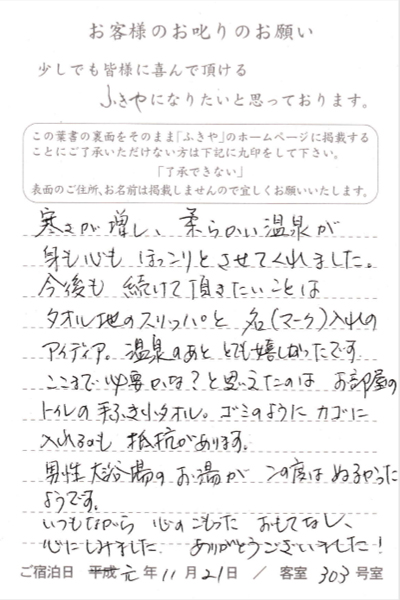 お客様のお叱りのお願い
少しでも皆様に喜んで頂ける
ふきやになりたいと思っております。
この葉書の裏面をそのまま「ふきや」のホームページに掲載する
ことにご了承いただけない方は下記に丸印をして下さい。
「了承できない」
表面のご住所、お名前は掲載しませんので宜しくお願いいたします。
寒さが増し、柔らかい温泉が
身も心も ほっこりとさせてくれました。
今後も 続けて頂きたいことは
タオル地のスリッパと 名(マーク)入れの
アイディア。温泉のあと とても嬉しかったです
ここまで必要かな?と思えたのは お部屋の
トイレの手ふき小タオル。ゴミのように カゴに
入れるのも 抵抗があります。
男性大浴場のお湯が この度は ぬるかった
ようです。
いつもながら 心のこもった おもてなし、
心にしみました。ありがとうございました!
ご宿泊日 平成 元年 11月 21日 / 客室 303号室